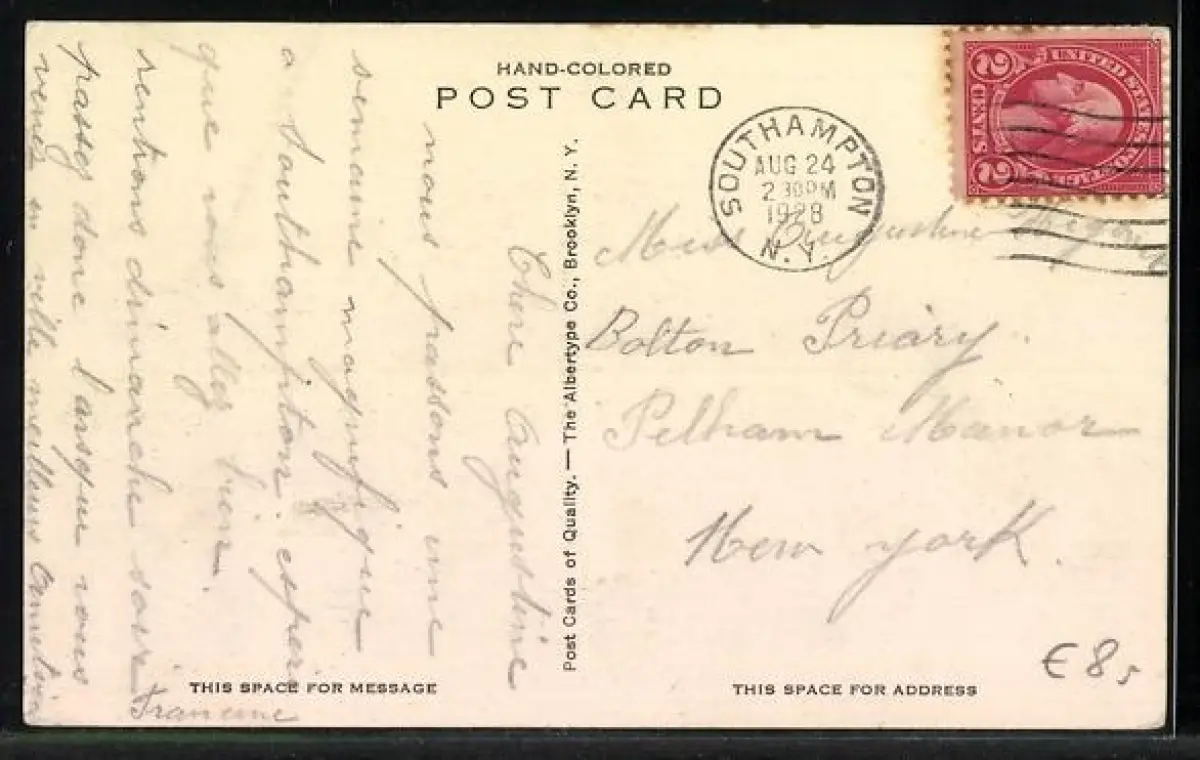 HAND-COLORED
POST CARD
Chere Augustine
nous passons une
semaine magnifique
a Southampton. esperi
que vous allez bien.
rentrons dimanche soir
passez donc lorsque vous
venez en ville meilleurs
Francine
THIS SPACE FOR MESSAGE
Post Cards of Quality. — The Albertype Co., Brooklyn, N. Y.
SOUTHAMPTON
AUG 24
2 30PM
1928
N.Y.
UNITED STATES
2 CENTS 2
Miss Augustine
Bolton Priary.
Pelham Manor
New York.
THIS SPACE FOR ADDRESS
€85